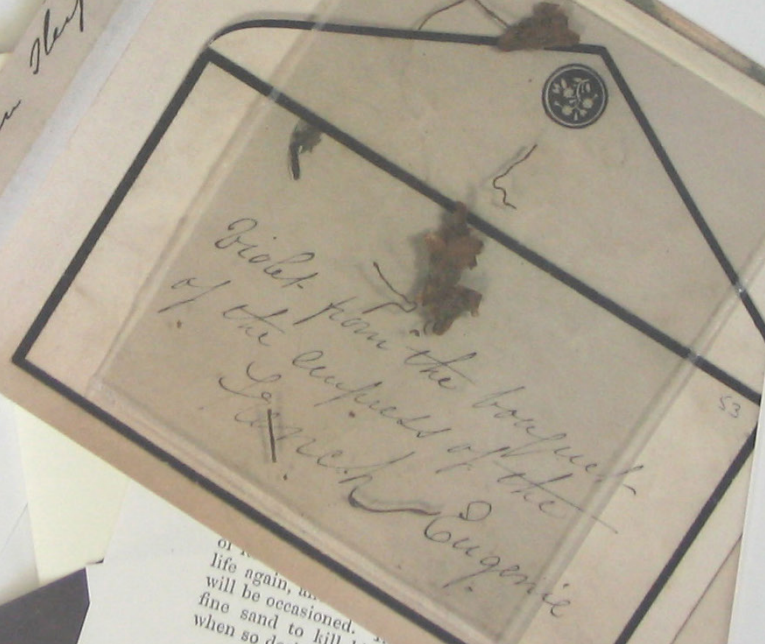 Violet from the bouquet
of the empress of the
French Eugenie
53
life again,
will be occasioned.
fine sand to kill
when so